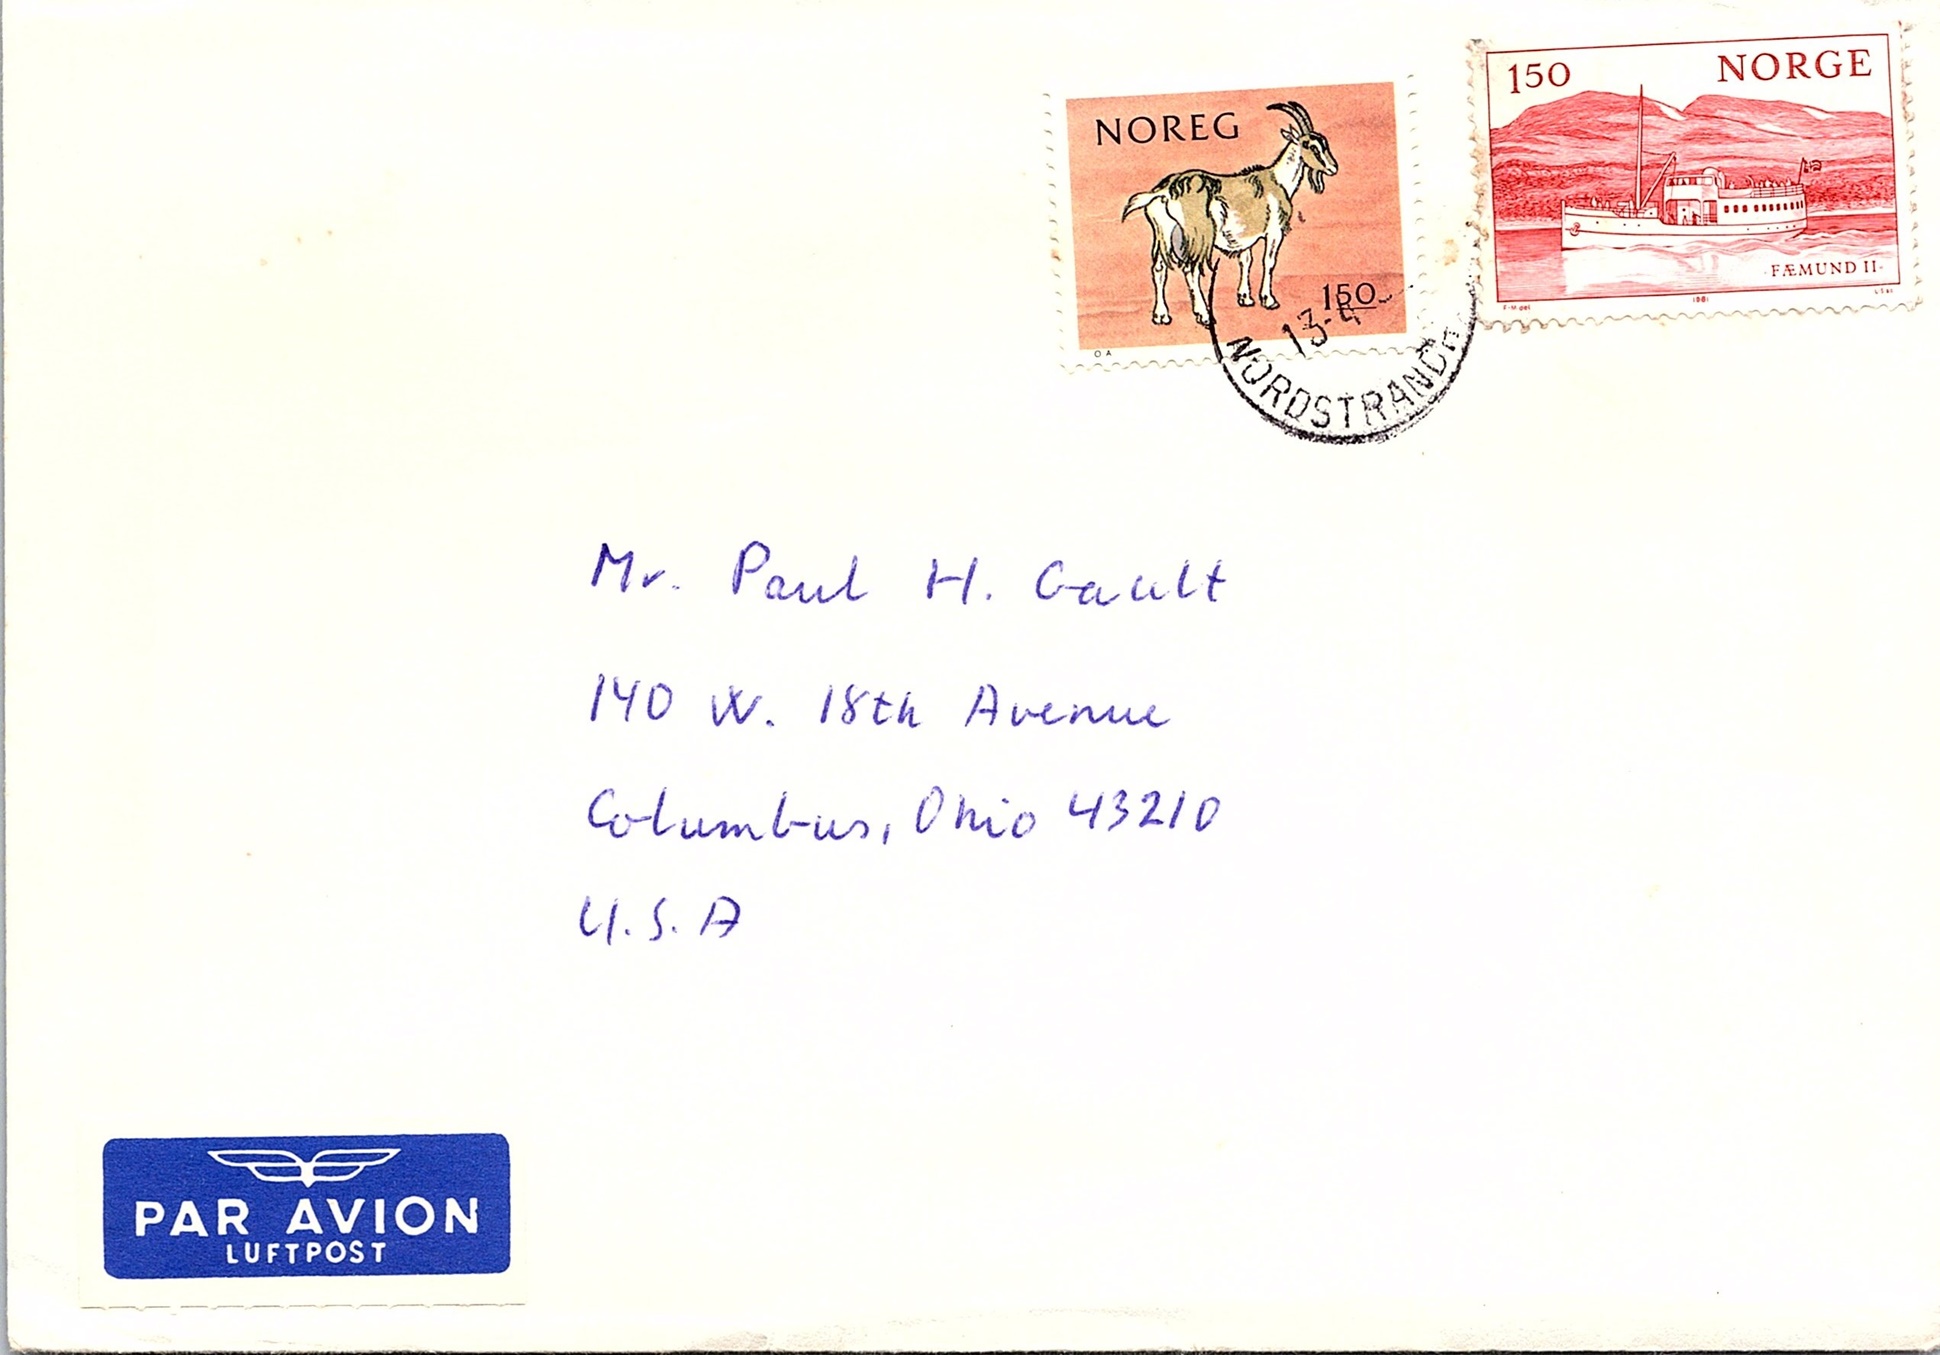 NOREG
150
O A
150 NORGE
FÆMUND II
1981
13-
NORDSTRAND
Mr. Paul H. Gault
140 W. 18th Avenue
Columbus, Ohio 43210
U.S.A
PAR AVION
LUFTPOST